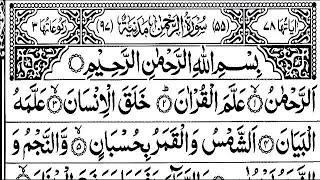 اٰیَاتُهَا ٧٨ (٥٥) سُوْرَةُ الرَّحْمٰنِ مَدَنِيَّةٌ (٩٧) رُكُوْعَاتُهَا ٣
بِسْمِ اللّٰهِ الرَّحْمٰنِ الرَّحِيْمِ
اَلرَّحْمٰنُ ۝١ عَلَّمَ الْقُرْاٰنَ ۝٢ خَلَقَ الْاِنْسَانَ ۝٣ عَلَّمَهُ
الْبَيَانَ ۝٤ اَلشَّمْسُ وَالْقَمَرُ بِحُسْبَانٍ ۝٥ وَّالنَّجْمُ وَ